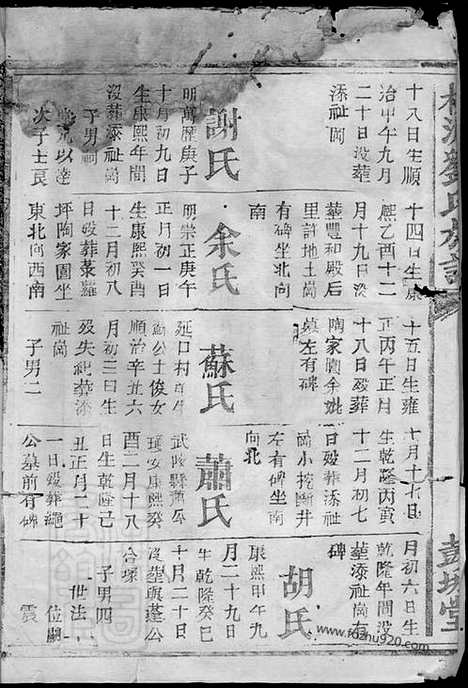 劉氏族譜
彭城堂
十八日生順
治甲午九月
二十日没葬
添祉崗
謝氏
明萬歷庚子
十月初九日
生康熙年間
没葬添祉崗
子男嗣
以達
次子士良
十四日生康
熙乙酉十二
月十九日没
葬豐和殿后
里許地土崗
有碑坐北向
南
余氏
明崇正庚午
正月初一日
生康熙癸酉
十二月初八
日殁葬菉羅
坪陶家園坐
東北向西南
十五日生雍
正丙午正月
十八日殁葬
陶家園余
墓左有碑
蘇氏
延口村生
蘇公士俊女
順治辛丑六
月初三日生
殁失紀葬添
祉崗
子男二
七月十七日
生乾隆丙寅
十二月初七
日殁葬添祉
崗小挖断井
左有碑坐南
向北
蕭氏
武陵縣蕭公
安康熙癸
酉二月十八
日生乾隆己
丑正月二十
一日殁葬繩
公墓前有碑
月初六日生
乾隆年間没
葬添祉崗有
碑
胡氏
康熙甲午九
月二十九日
生乾隆癸巳
十月二十日
没葬與蓬公
合塚
子男四
世法
位嗣
震